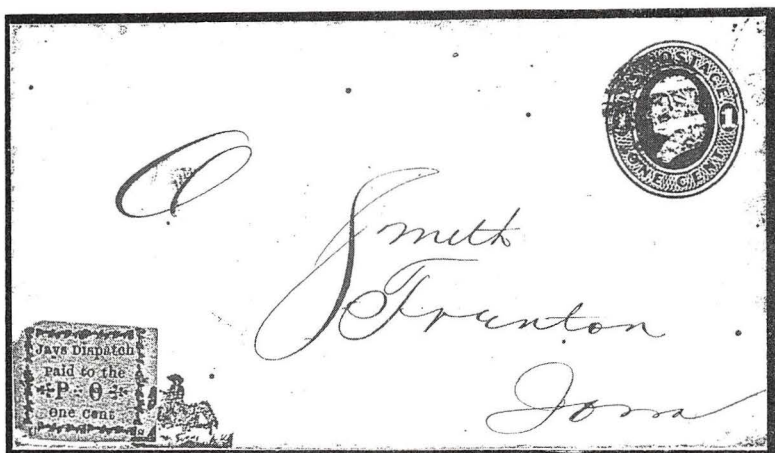 U.S. POSTAGE
1
ONE CENT
O Smith
Trenton
Iowa
Jays Dispatch
Paid to the
P - O
One Cent